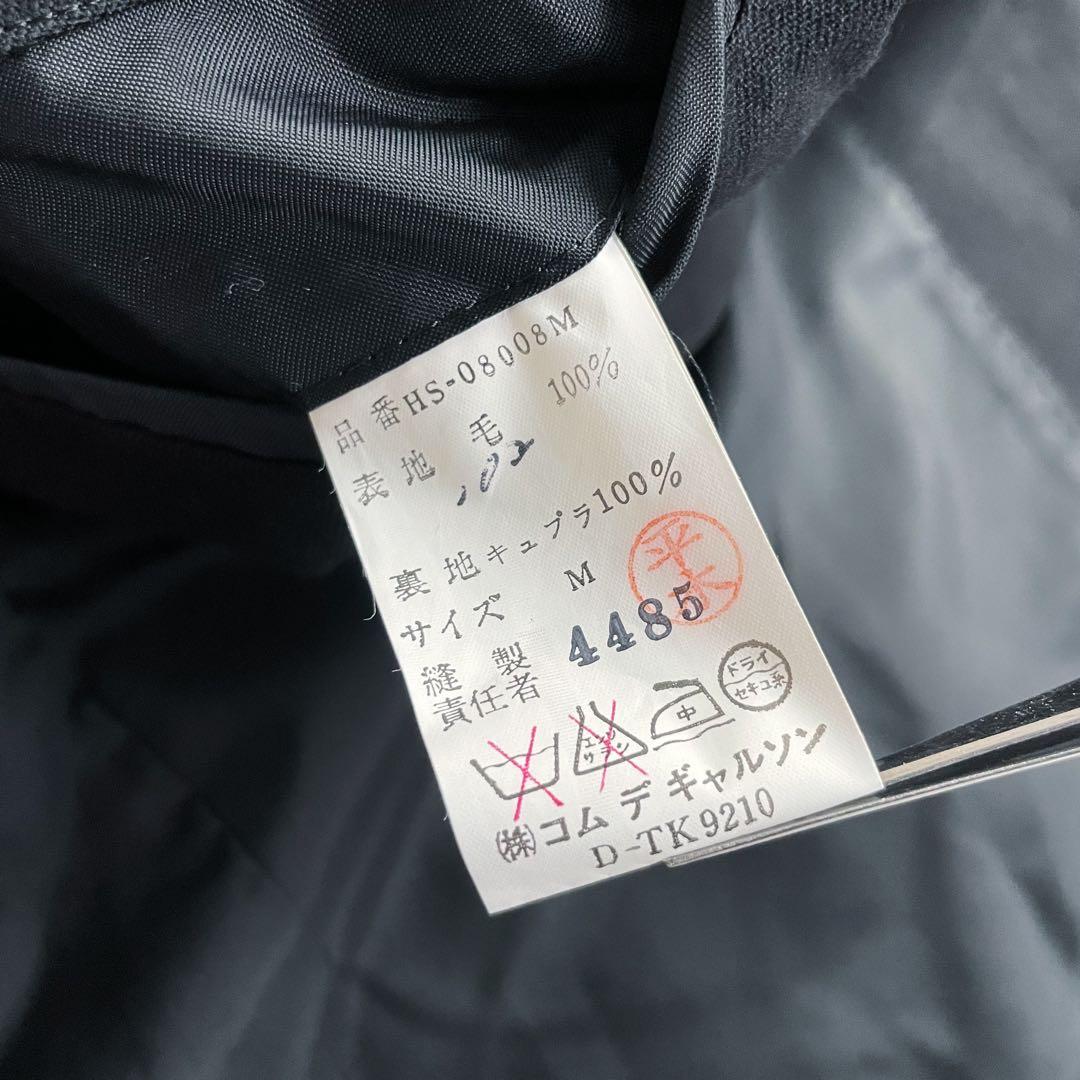 品番HS-08008M
表地 毛 100%
102
裏地キュプラ100%
サイズ M
縫製
責任者 4485
平
エンソ
サラシ
中
ドライ
セキユ系
㈱コム デ ギャルソン
D-TK9210